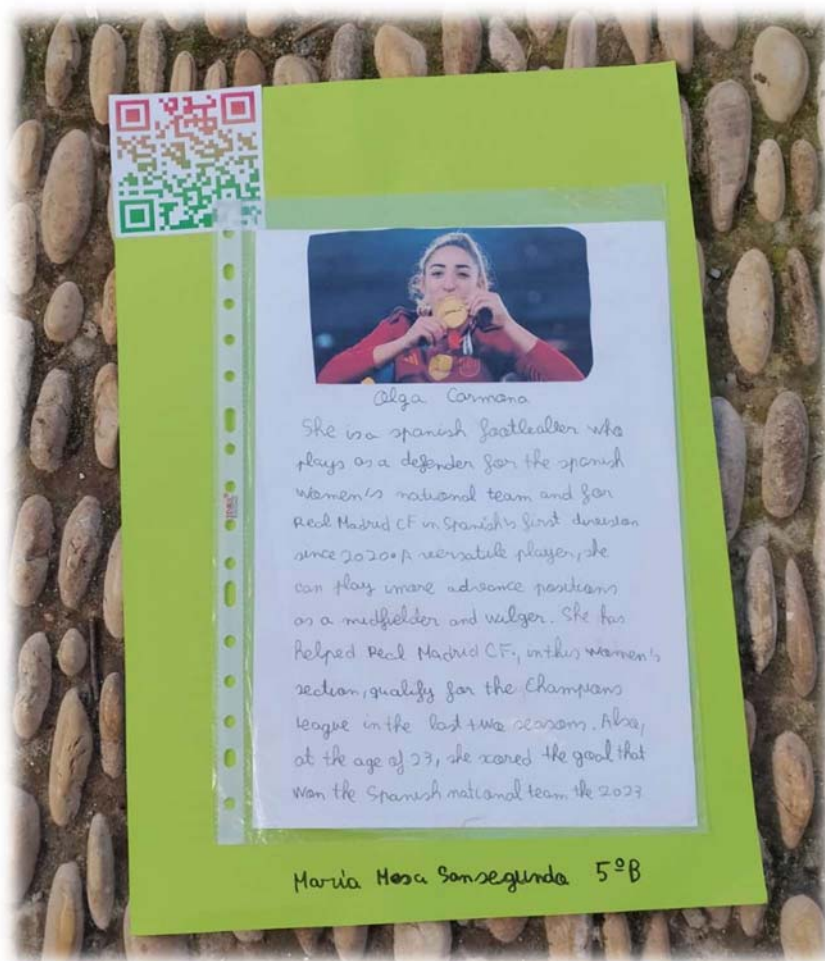 Olga Carmona
She is a spanish footballer who
plays as a defender for the spanish
women's national team and for
Real Madrid CF in Spanish's first division
since 2020. A versatile player, she
can play imore advance positions
as a midfielder and wilger. She has
helped Real Madrid CF., in this women's
section, qualify for the Champions
League in the last two seasons. Also,
at the age of 23, she scored the goal that
won the Spanish national team the 2023
María Mesa Sansegundo 5ºB